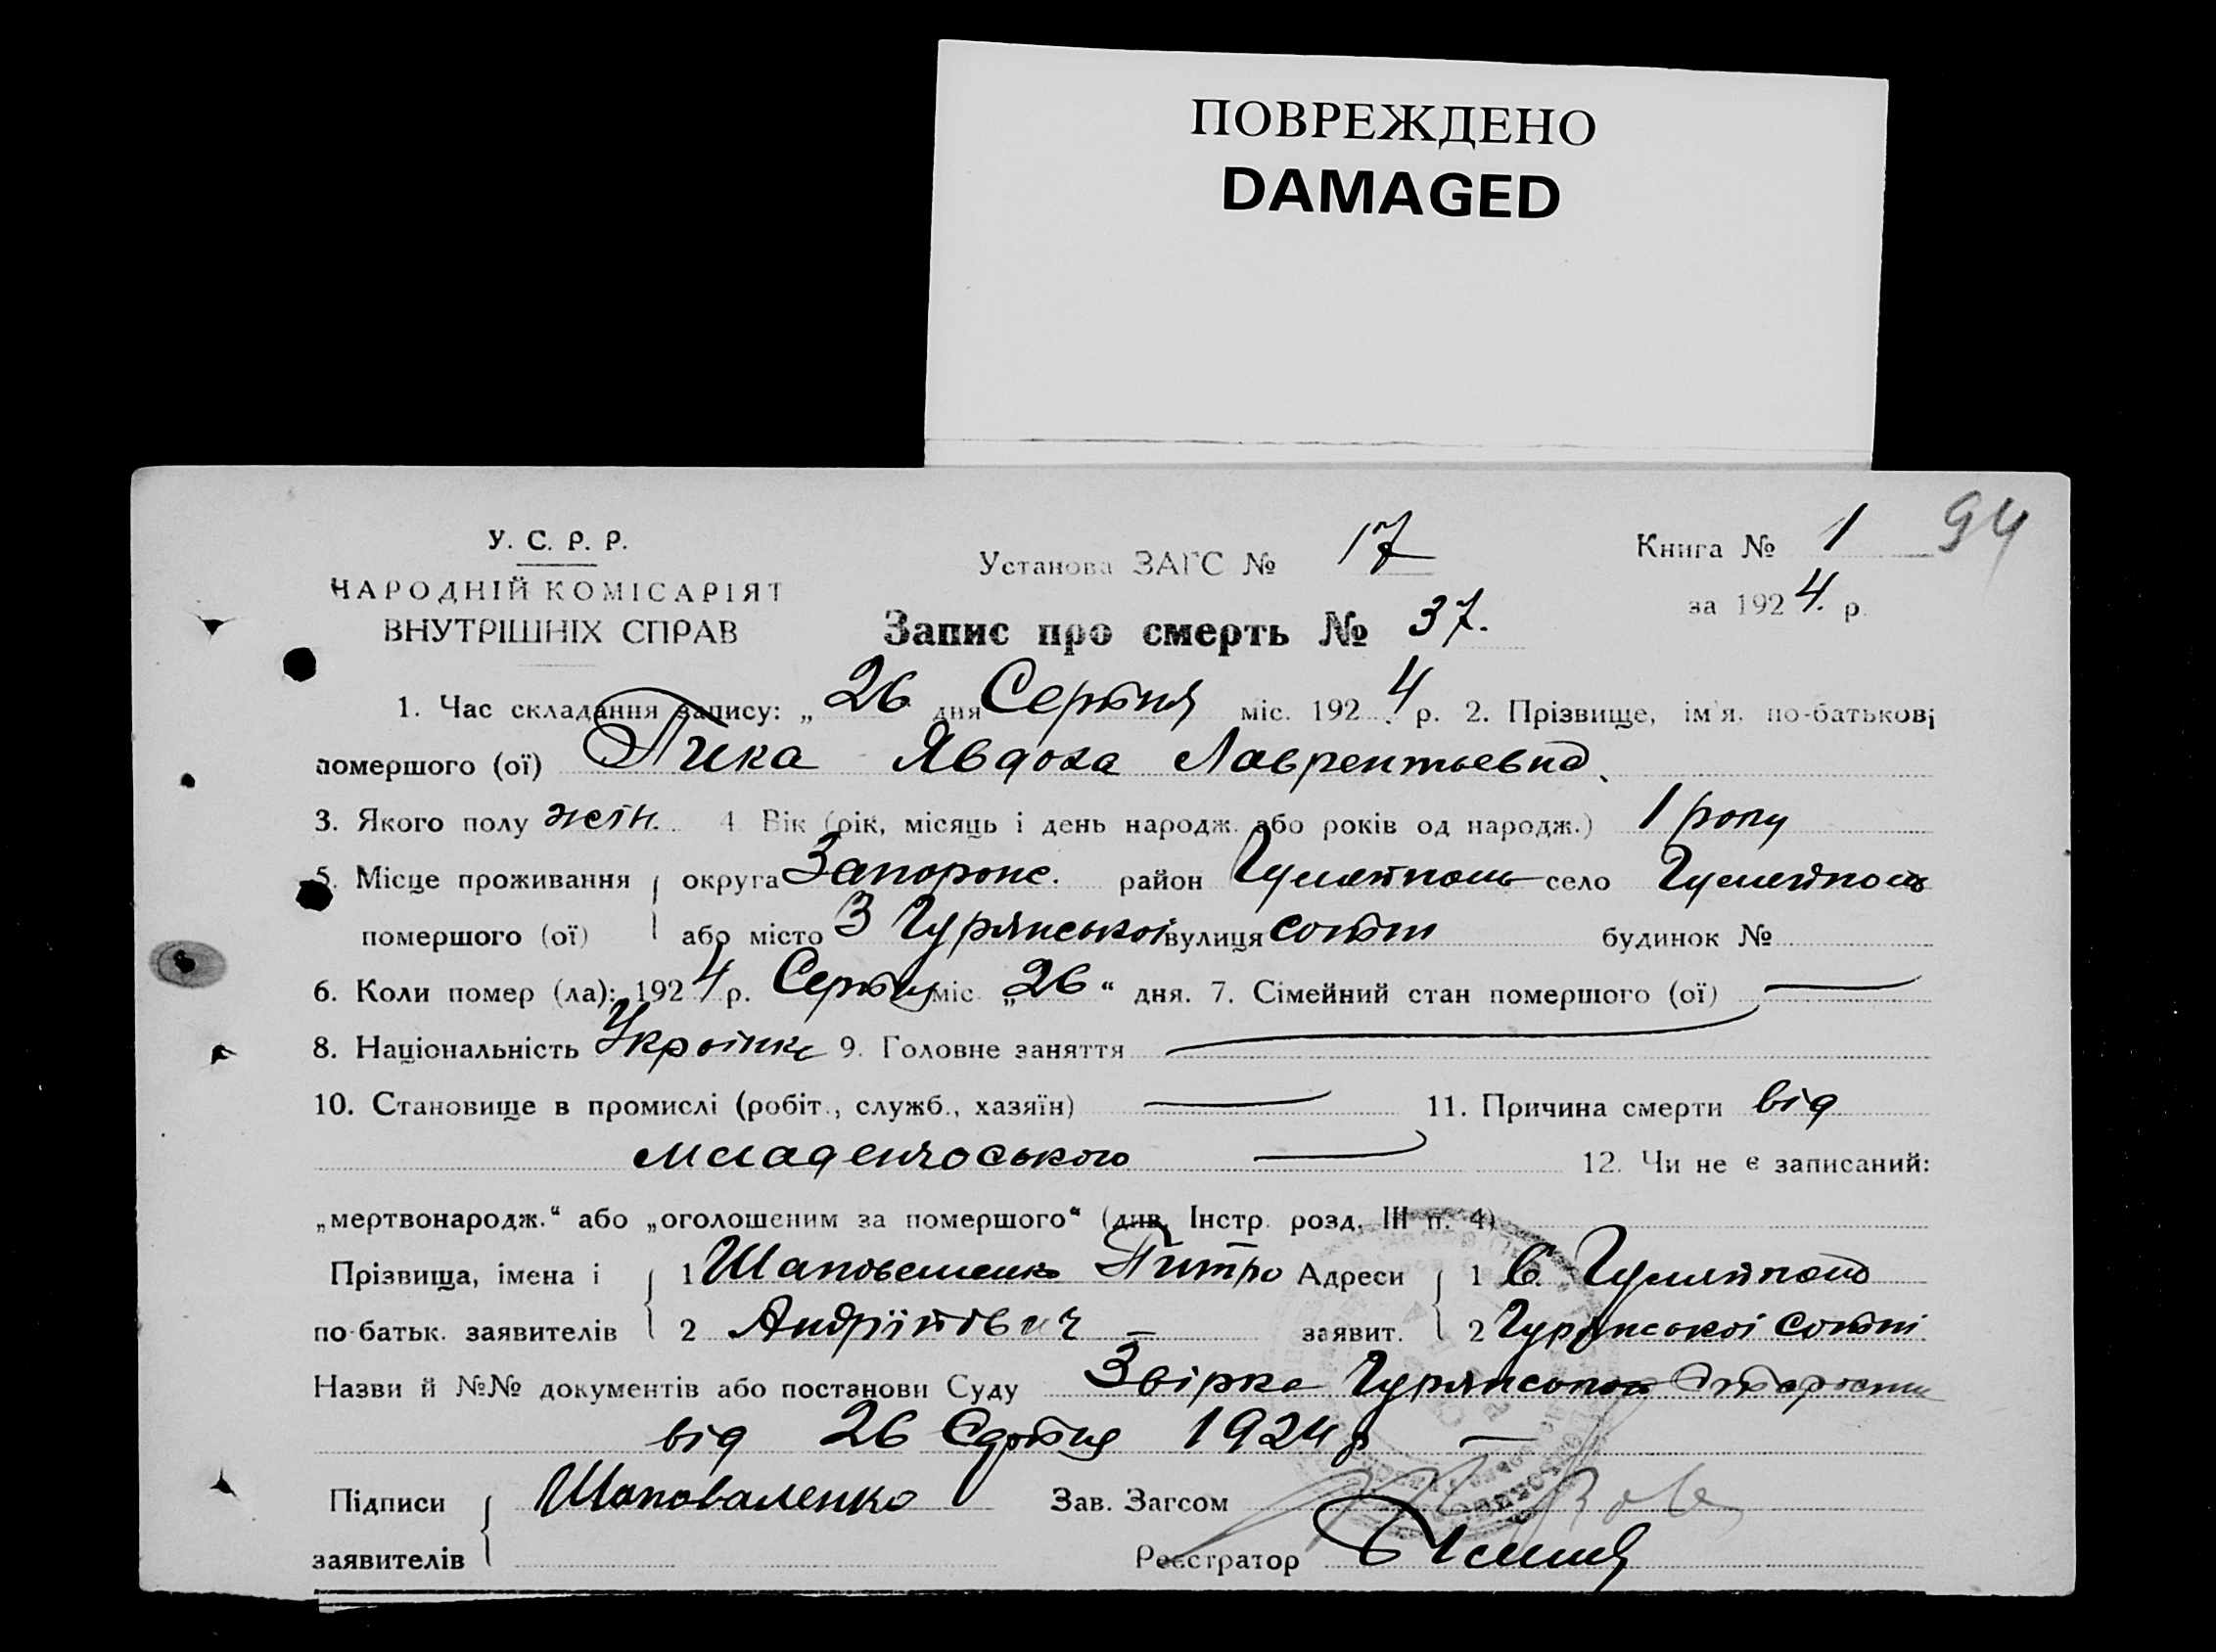 ПОВРЕЖДЕНО
DAMAGED
У. С. Р. Р.
НАРОДНІЙ КОМІСАРІЯТ
ВНУТРІШНІХ СПРАВ
Установа ЗАГС № 17
Книга № 1 94
за 1924. р.
Запис про смерть № 37.
1. Час складання запису: „26 дня Серпня міс. 1924 р. 2. Прізвище, ім'я, по-батькові
помершого (ої) Пика Явдоха Лаврентьевна
3. Якого полу жін. 4 Вік (рік, місяць і день народж. або років од народж.) 1 року
5. Місце проживання округа Запорож. район Гуляйполь село Гуляйполь
помершого (ої) або місто З Гурянської вулиця сотні будинок №
6. Коли помер (ла): 1924 р. Серпня міс. „26“ дня. 7. Сімейний стан помершого (ої) —
8. Національність Українка 9. Головне заняття —
10. Становище в промислі (робіт., служб., хазяїн) — 11. Причина смерти від
младенчоського — 12. Чи не є записаний:
„мертвонародж.“ або „оголошеним за помершого“ (див. Інстр. розд. III п. 4)
Прізвища, імена і 1 Шаповаленко Питро Адреси 1 С. Гуляйполь
по-батьк. заявителів 2 Андрійович — заявит. 2 Гурянської сотні
Назви й №№ документів або постанови Суду Гурянської
від 26 Серпня 1924 р —
Підписи Шаповаленко Зав. Загсом
заявителів Реєстратор